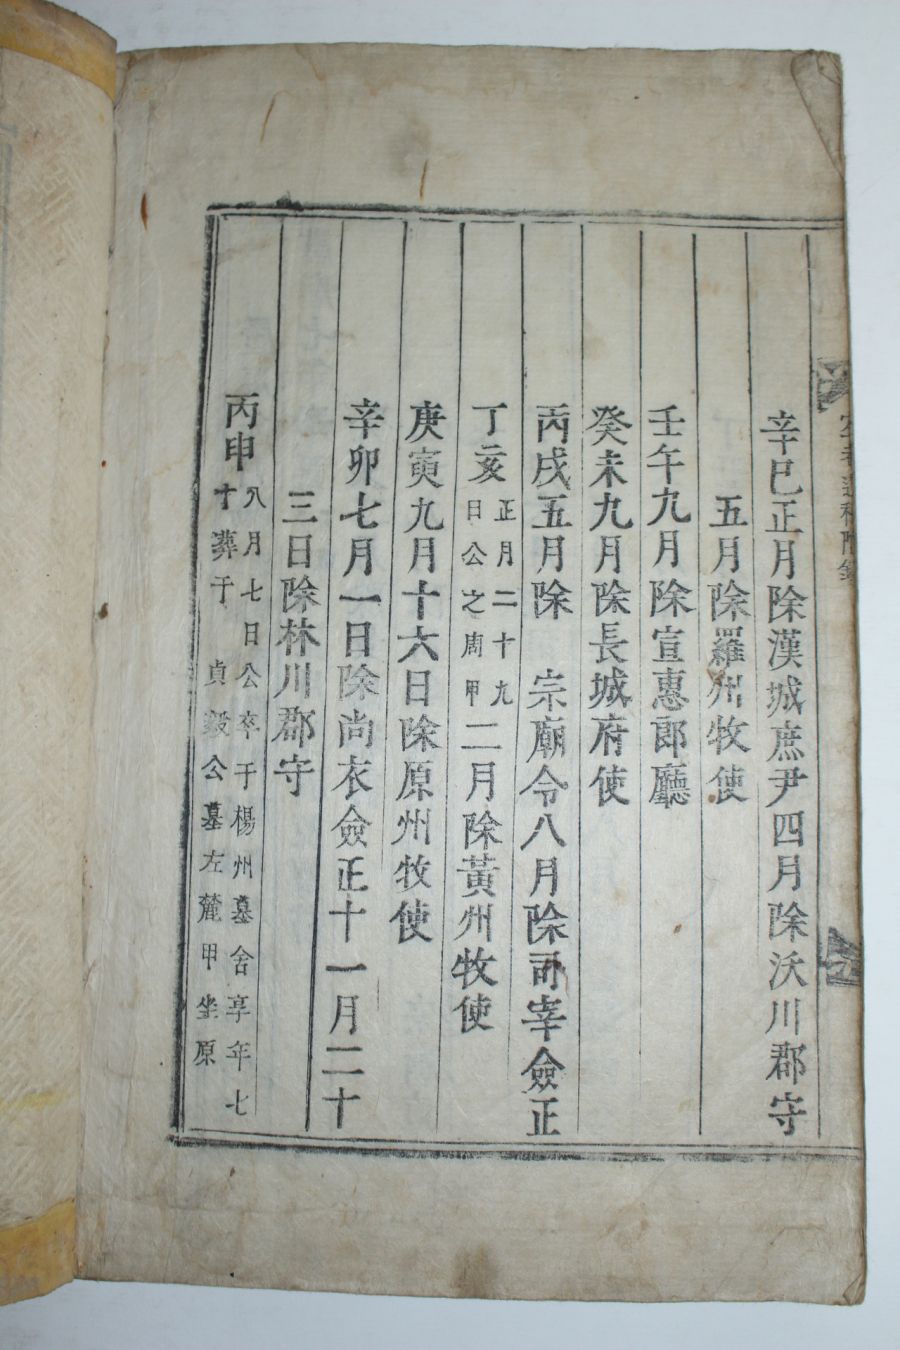 辛巳正月除漢城庶尹四月除沃川郡守
五月除羅州牧使
壬午九月除宣惠郎廳
癸未九月除長城府使
丙戌五月除 宗廟令八月除司宰僉正
丁亥正月二十九日公之周甲二月除黃州牧使
庚寅九月十六日除原州牧使
辛卯七月一日除尚衣僉正十一月二十
三日除林川郡守
丙申八月七日公卒于楊州墓舍享年七
十葬于 貞毅公墓左麓甲坐原